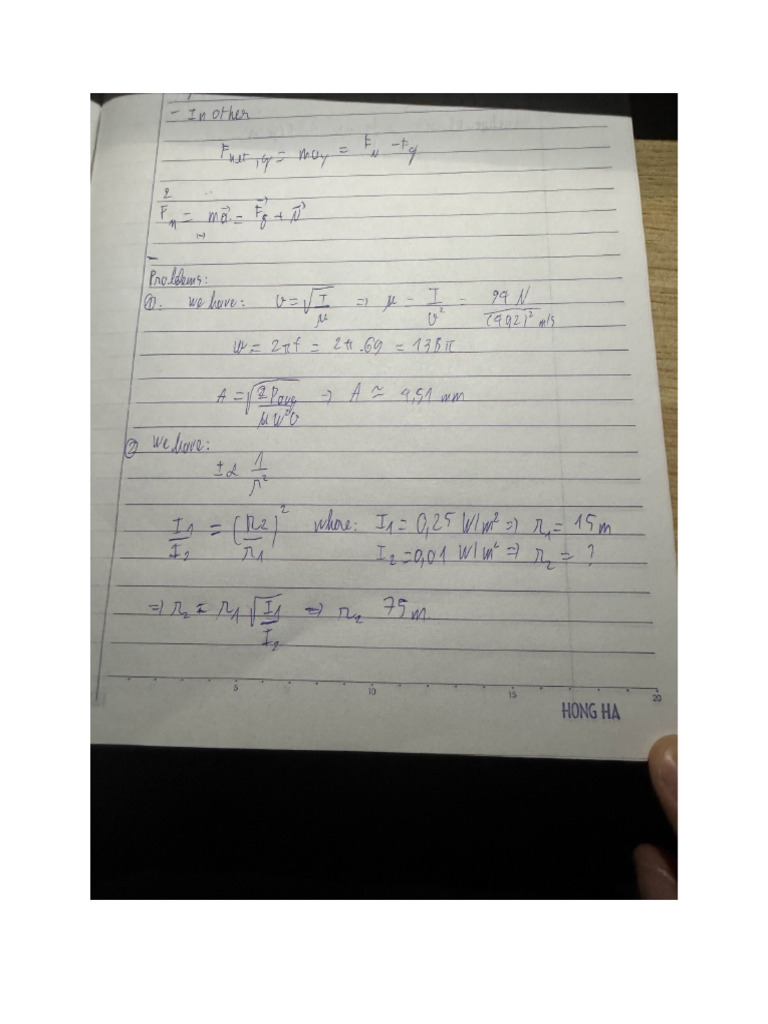 - In other
Fnet,y = may = FN - Fg
2
Fn = ma⃗ = F⃗g + N⃗
-
Problems:
①. we have: v = √(I/μ) => μ = I/v² = 94 N/(492)² m/s
w = 2πf = 2π.69 = 138π
A = √(2Pavg/μw²v) => A ≃ 4,51 mm
② We have:
±α 1/r²
I1/I2 = (r2/r1)² where: I1 = 0,25 W/m² => r1 = 15 m
I2 = 0,01 W/m² => r2 = ?
=> r2 = r1 √(I1/I2) => r2 75 m
5 10 15 20
HONG HA